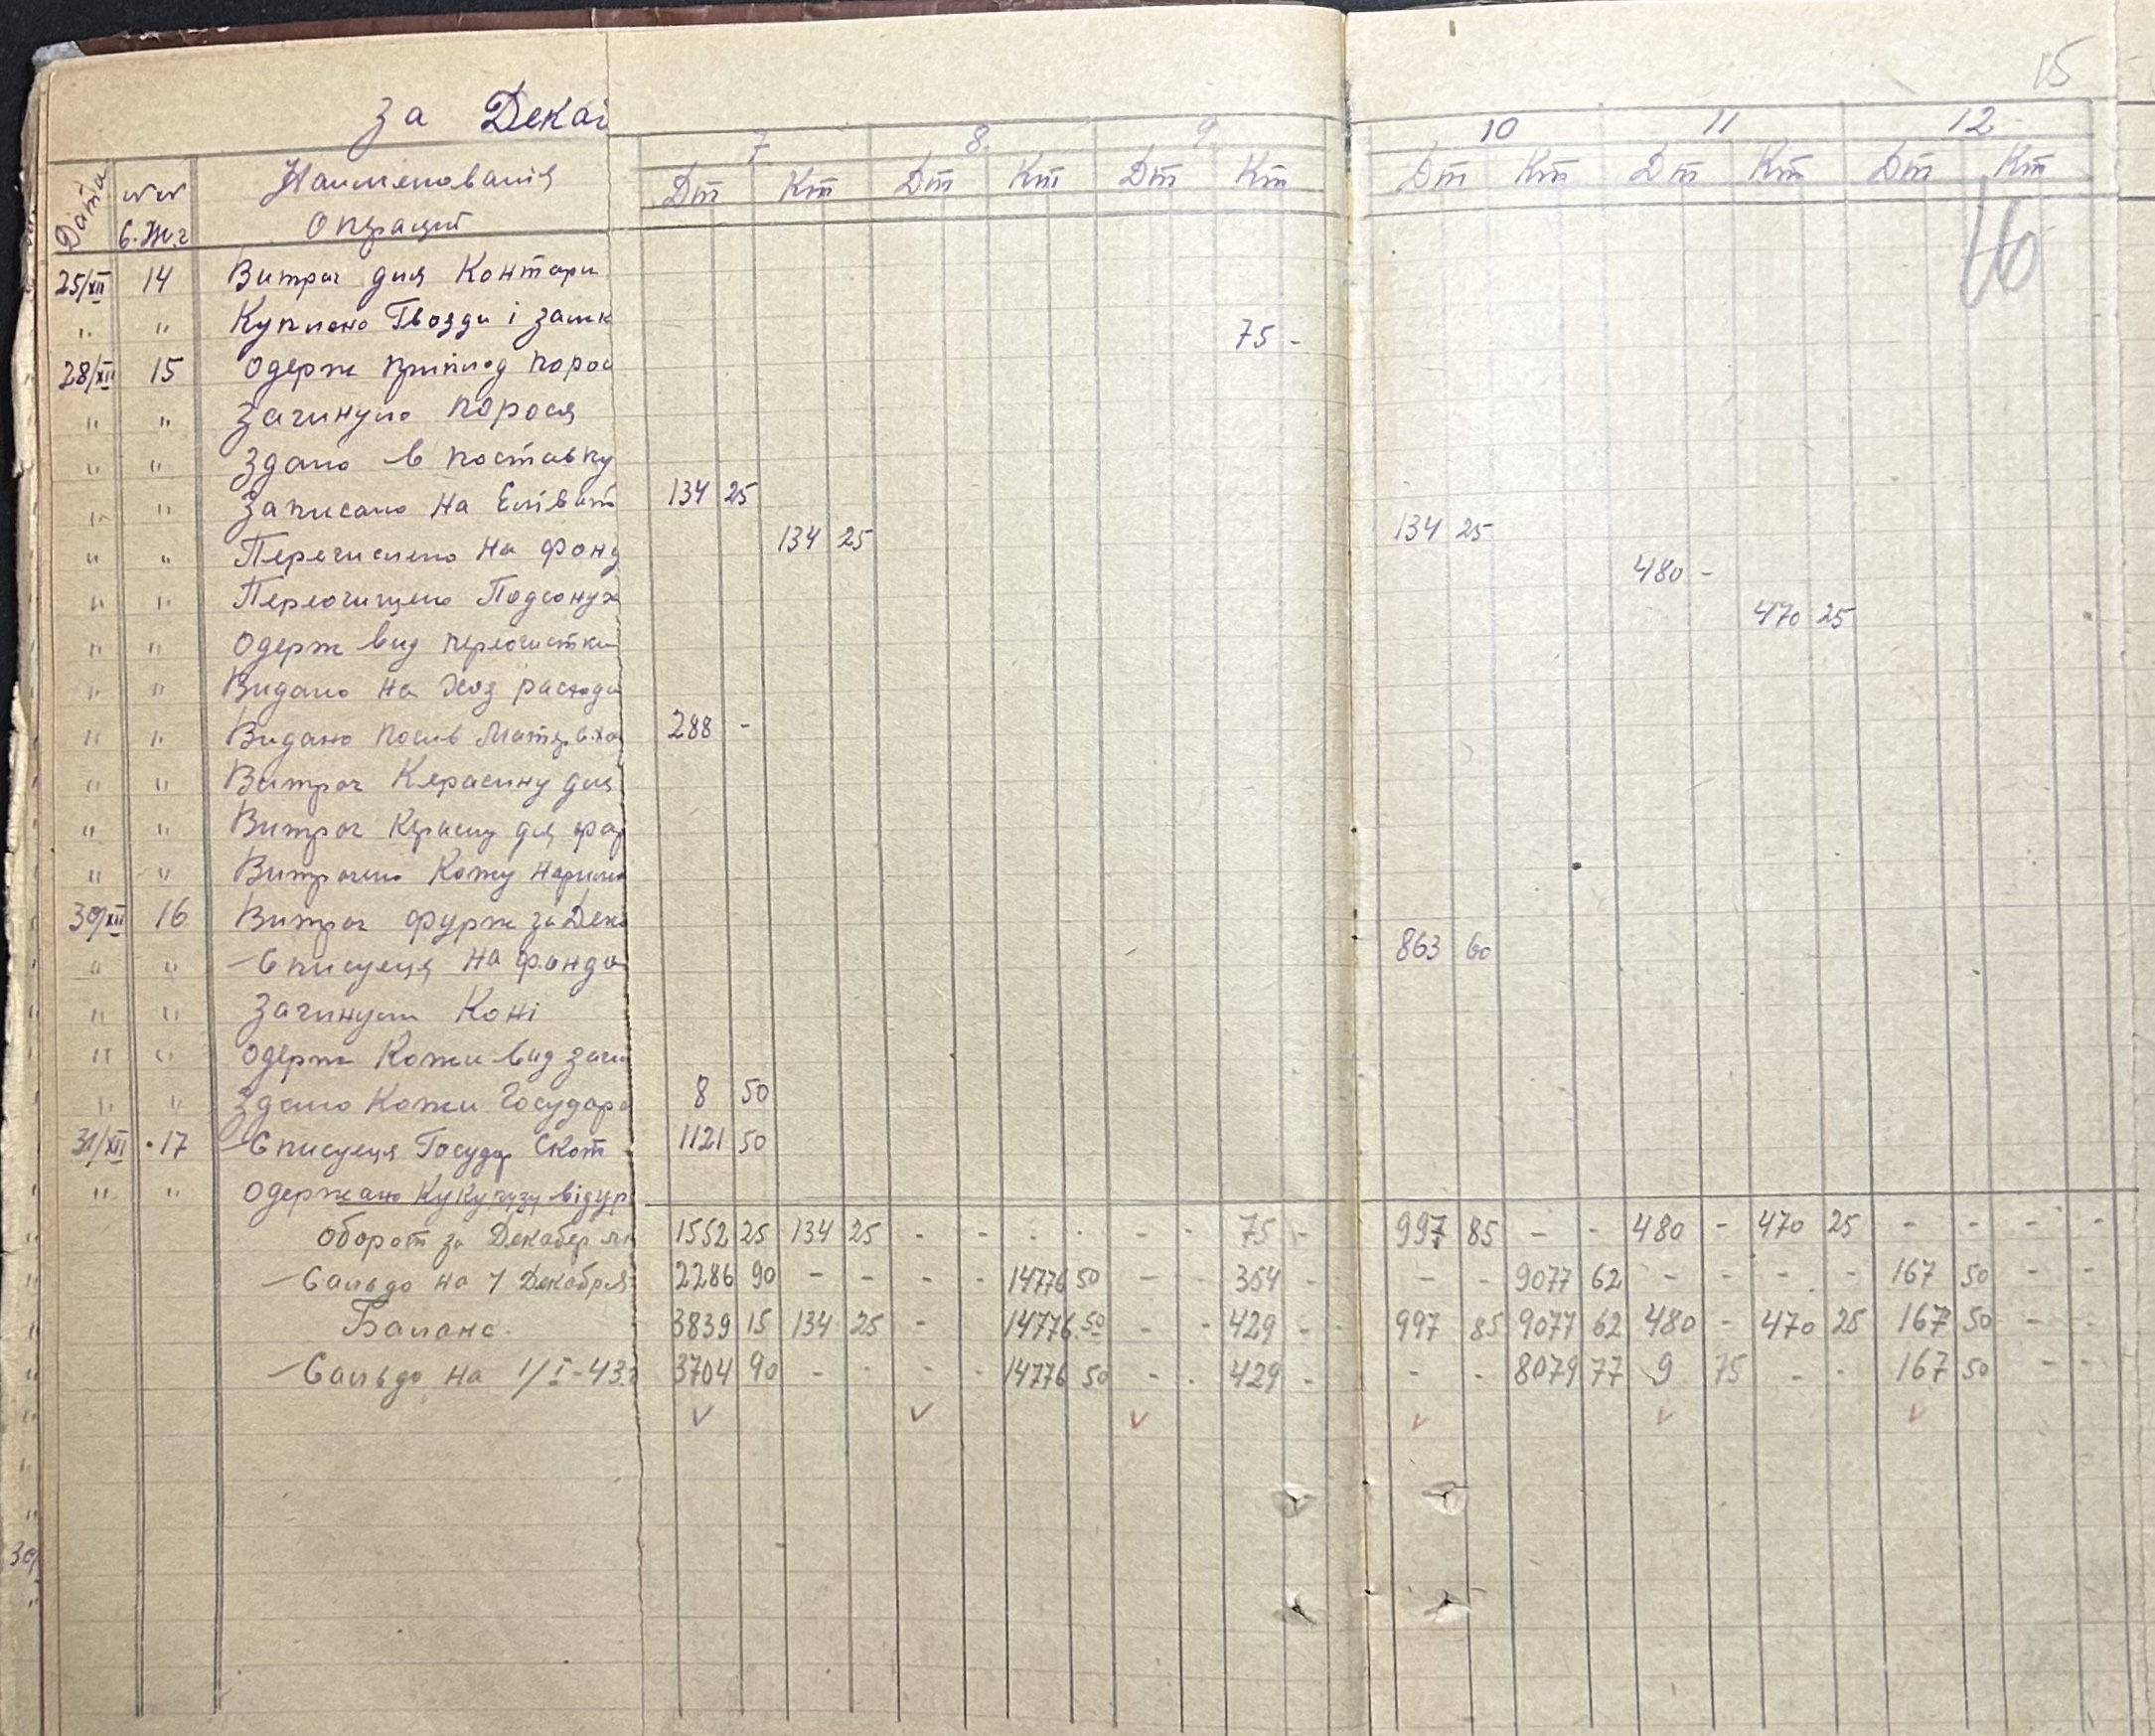 15
за Декаб
7 8. 9. 10 11 12
Дата №№ Наименованія Дт Кт Дт Кт Дт Кт Дт Кт Дт Кт Дт Кт
б.Ж.г Операций
16
25/XII 14 Витрач для Контори
" " Куплено Гвозди і замк 75 -
28/XII 15 Одерж приплод порос
" " Загинуло порося
" " Здано в поставку
" " Записано на Елеват 134 25
" " Перечислено на фонд 134 25 134 25
" " Переочищено Подсонух 480 -
" " Одерж вид переочистки 470 25
" " Видано на Хоз расходи
" " Видано посів Матер 288 -
" " Витрач Керасину для
" " Витрач Керасину для
" " Витрачено Кожу
30/XII 16 Витрач фурж за Дека
" " Списуеця на фонда 863 60
" " Загинули Коні
" " Одерж Кожи вид заги
" " Здано Кожи Государс 8 50
31/XII 17 Списуеця Государ Скот 1121 50
" " Одержано Кукурузу від
Оборот за Декабер 1552 25 134 25 - - - - - - 75 - 997 85 - - 480 - 470 25 - - - -
Сальдо на 1 Декабря 2286 90 - - - - 14776 50 - - 354 - - 9077 62 - - - - 167 50 - -
Баланс. 3839 15 134 25 - 14776 50 - - 429 - 997 85 9077 62 480 - 470 25 167 50 - -
Сальдо на 1/I-43.г 3704 90 - - - - 14776 50 - - 429 - - - 8079 77 9 75 - - 167 50 - -
30/